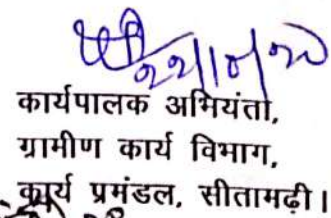 22/10/20
कार्यपालक अभियंता,
ग्रामीण कार्य विभाग,
कार्य प्रमंडल, सीतामढ़ी।